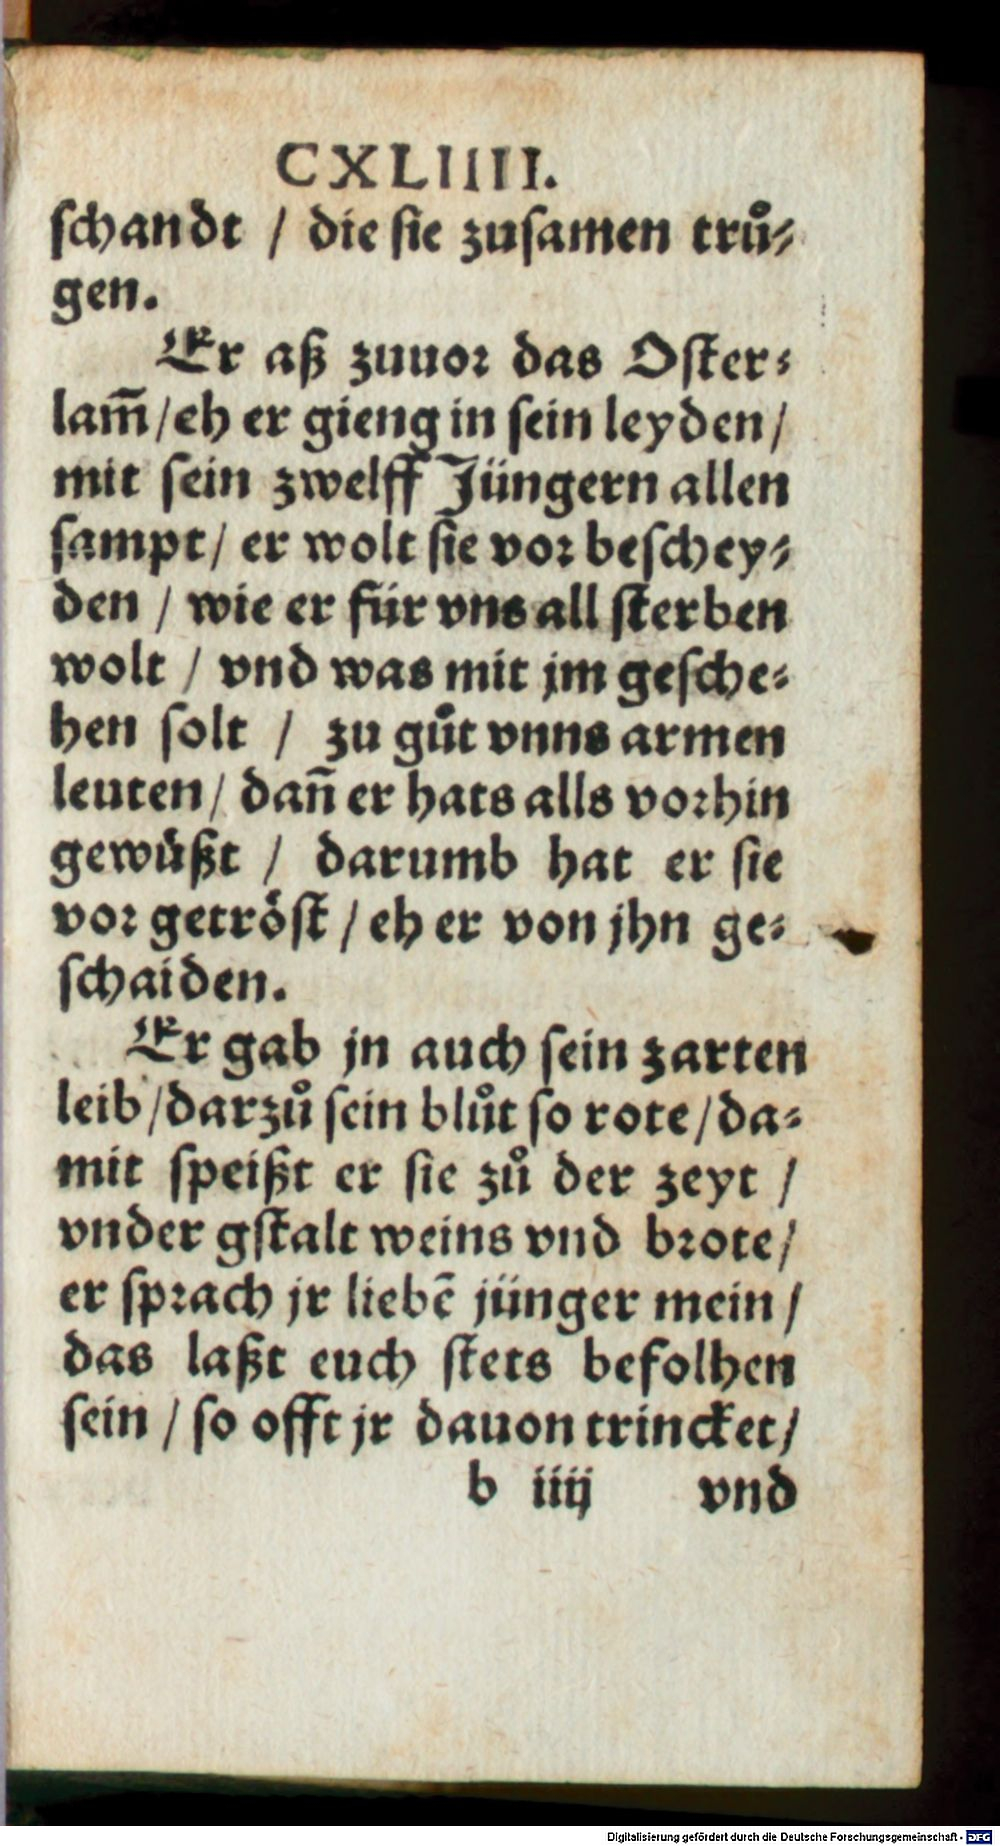 CXLIIII.
ſchandt / die ſie zuſamen truͦ⸗
gen.
Er aß zuuoꝛ das Oſter⸗
lam̄ / eh er gieng in ſein leyden /
mit ſein zwelff Jüngern allen
ſampt / er wolt ſie voꝛ beſchey⸗
den / wie er für vns all ſterben
wolt / vnd was mit jm geſche⸗
hen ſolt / zu guͦt vnns armen
leuten / dan̄ er hats alls voꝛhin
gewüßt / darumb hat er ſie
voꝛ getroͤſt / eh er von jhn ge⸗
ſchaiden.
Er gab jn auch ſein zarten
leib / darzuͦ ſein bluͦt ſo rote / da⸗
mit ſpeißt er ſie zuͦ der zeyt /
vnder gſtalt weins vnd bꝛote /
er ſpꝛach jr liebē jünger mein /
das laßt euch ſtets befolhen
ſein / ſo offt jr dauon trincket /
b iiij vnd
Digitalisierung gefördert durch die Deutsche Forschungsgemeinschaft - DFG